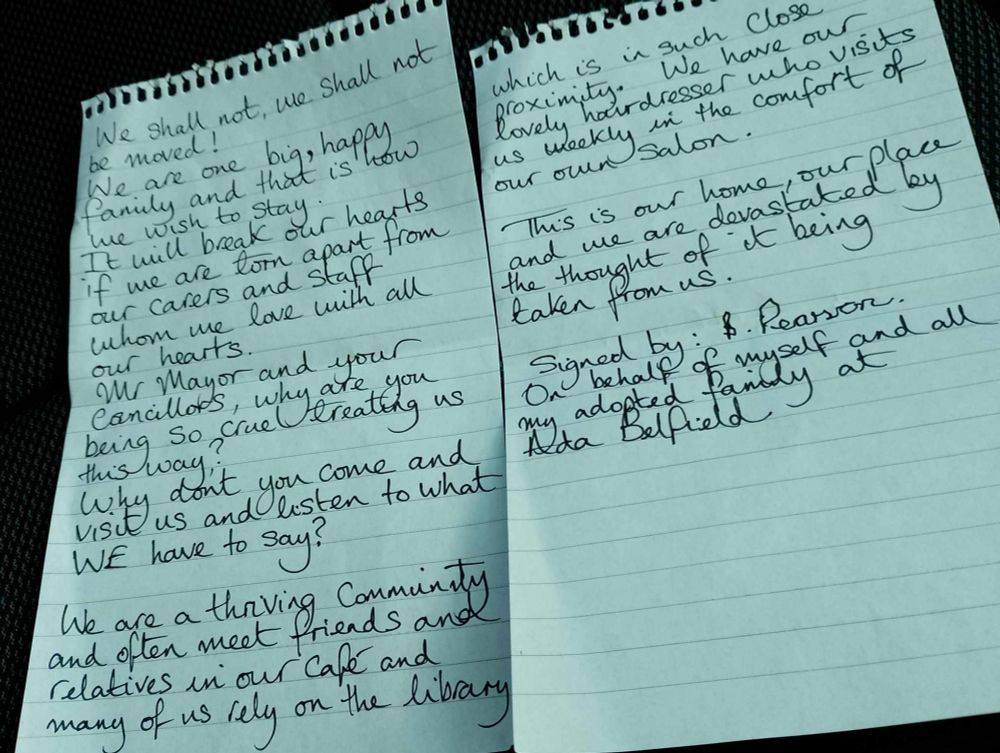 We shall not, we shall not
be moved!
We are one big, happy
family and that is how
we wish to stay.
It will break our hearts
if we are torn apart from
our carers and staff
whom we love with all
our hearts.
Mr Mayor and your
Cancillors, why are you
being so cruel treating us
this way?
Why don't you come and
visit us and listen to what
WE have to say?
We are a thriving Community
and often meet friends and
relatives in our Café and
many of us rely on the library
which is in such close
proximity. We have our
lovely hairdresser who visits
us weekly in the comfort of
our own salon.
This is our home, our place
and we are devastated by
the thought of it being
taken from us.
Signed by: B. Pearson.
On behalf of myself and all
my adopted family at
Ada Belfield